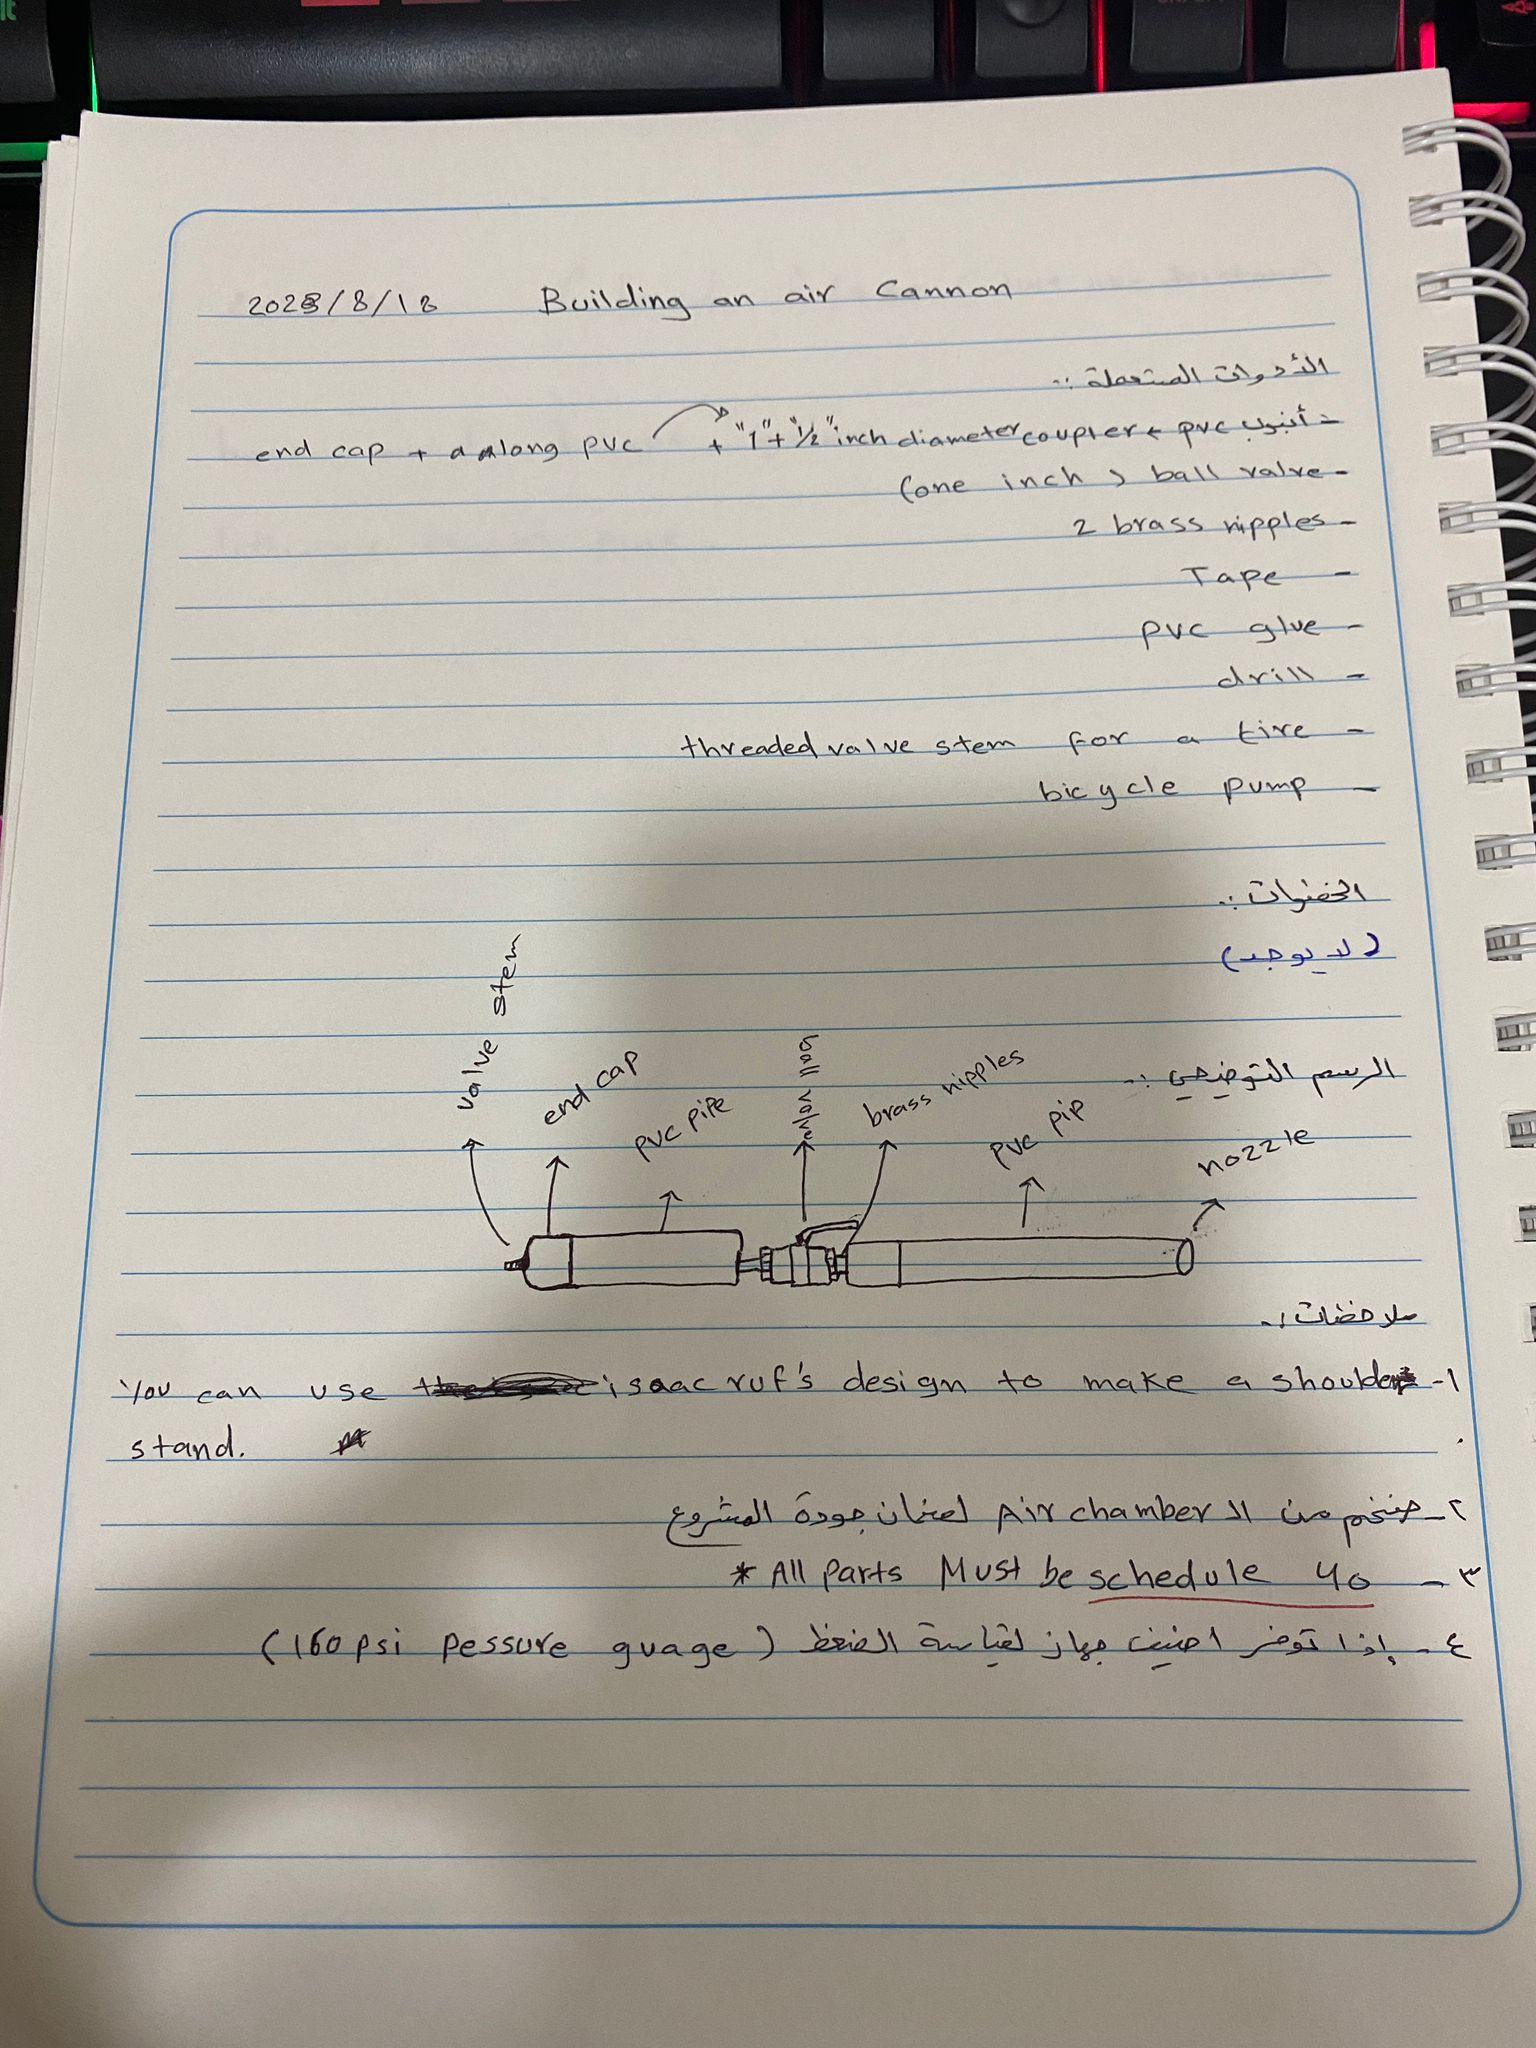 2023/8/18 Building an air Cannon
الأدوات المستعملة :-
- أنبوب pvc + coupler "1"+"1/2" inch diameter + end cap + a long pvc
- ball valve (one inch)
- 2 brass nipples
- Tape
- pvc glue
- drill
- threaded valve stem for a tire
- bicycle pump
الخضوات :-
(لا يوجد)
الرسم التوضيحي :-
valve stem
end cap
pvc pipe
ball valve
brass nipples
pvc pip
nozzle
ملاحضات :-
١- You can use isaac ruf's design to make a shoulder
stand.
٢- ضخم من الـ Air chamber لضمان جودة المشروع
٣- * All parts Must be schedule 40
٤- إذا توفر اضيف جهاز لقياسة الضغط (160 psi pessure guage)